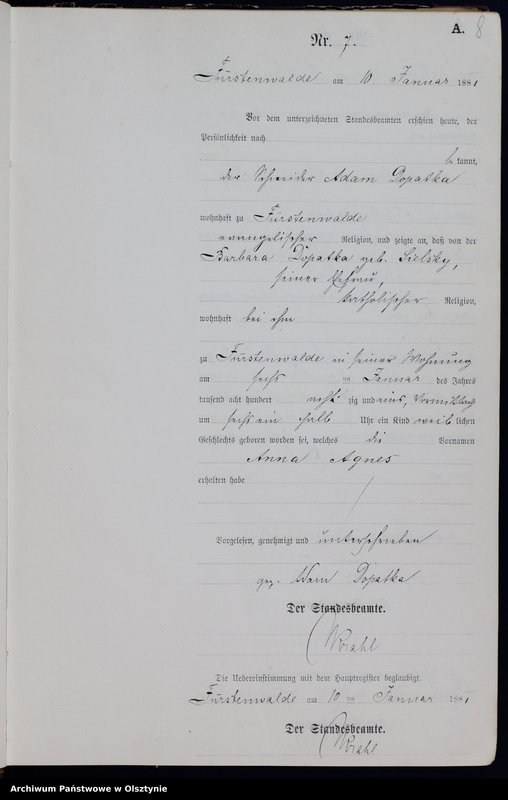 A. 8
Nr. 7.
Fürstenwalde am 10. Januar 1881
Vor dem unterzeichneten Standesbeamten erschien heute, der
Persönlichkeit nach
be kannt,
der Schneider Adam Dopatka
wohnhaft zu Fürstenwalde
evangelischer Religion, und zeigte an, daß von der
Barbara Dopatka geb. Sielsky,
seiner Ehefrau,
katholischer Religion,
wohnhaft bei ihm
zu Fürstenwalde in seiner Wohnung
am sechs ten Januar des Jahres
tausend acht hundert acht zig und eins, Vormittags
um sechs ein halb Uhr ein Kind weib lichen
Geschlechts geboren worden sei, welches die Vornamen
Anna Agnes
erhalten habe
Vorgelesen, genehmigt und unterschrieben
gez. Adam Dopatka
Der Standesbeamte.
Die Uebereinstimmung mit dem Hauptregister beglaubigt.
Fürstenwalde am 10 ten Januar 1881
Der Standesbeamte.
Archiwum Państwowe w Olsztynie